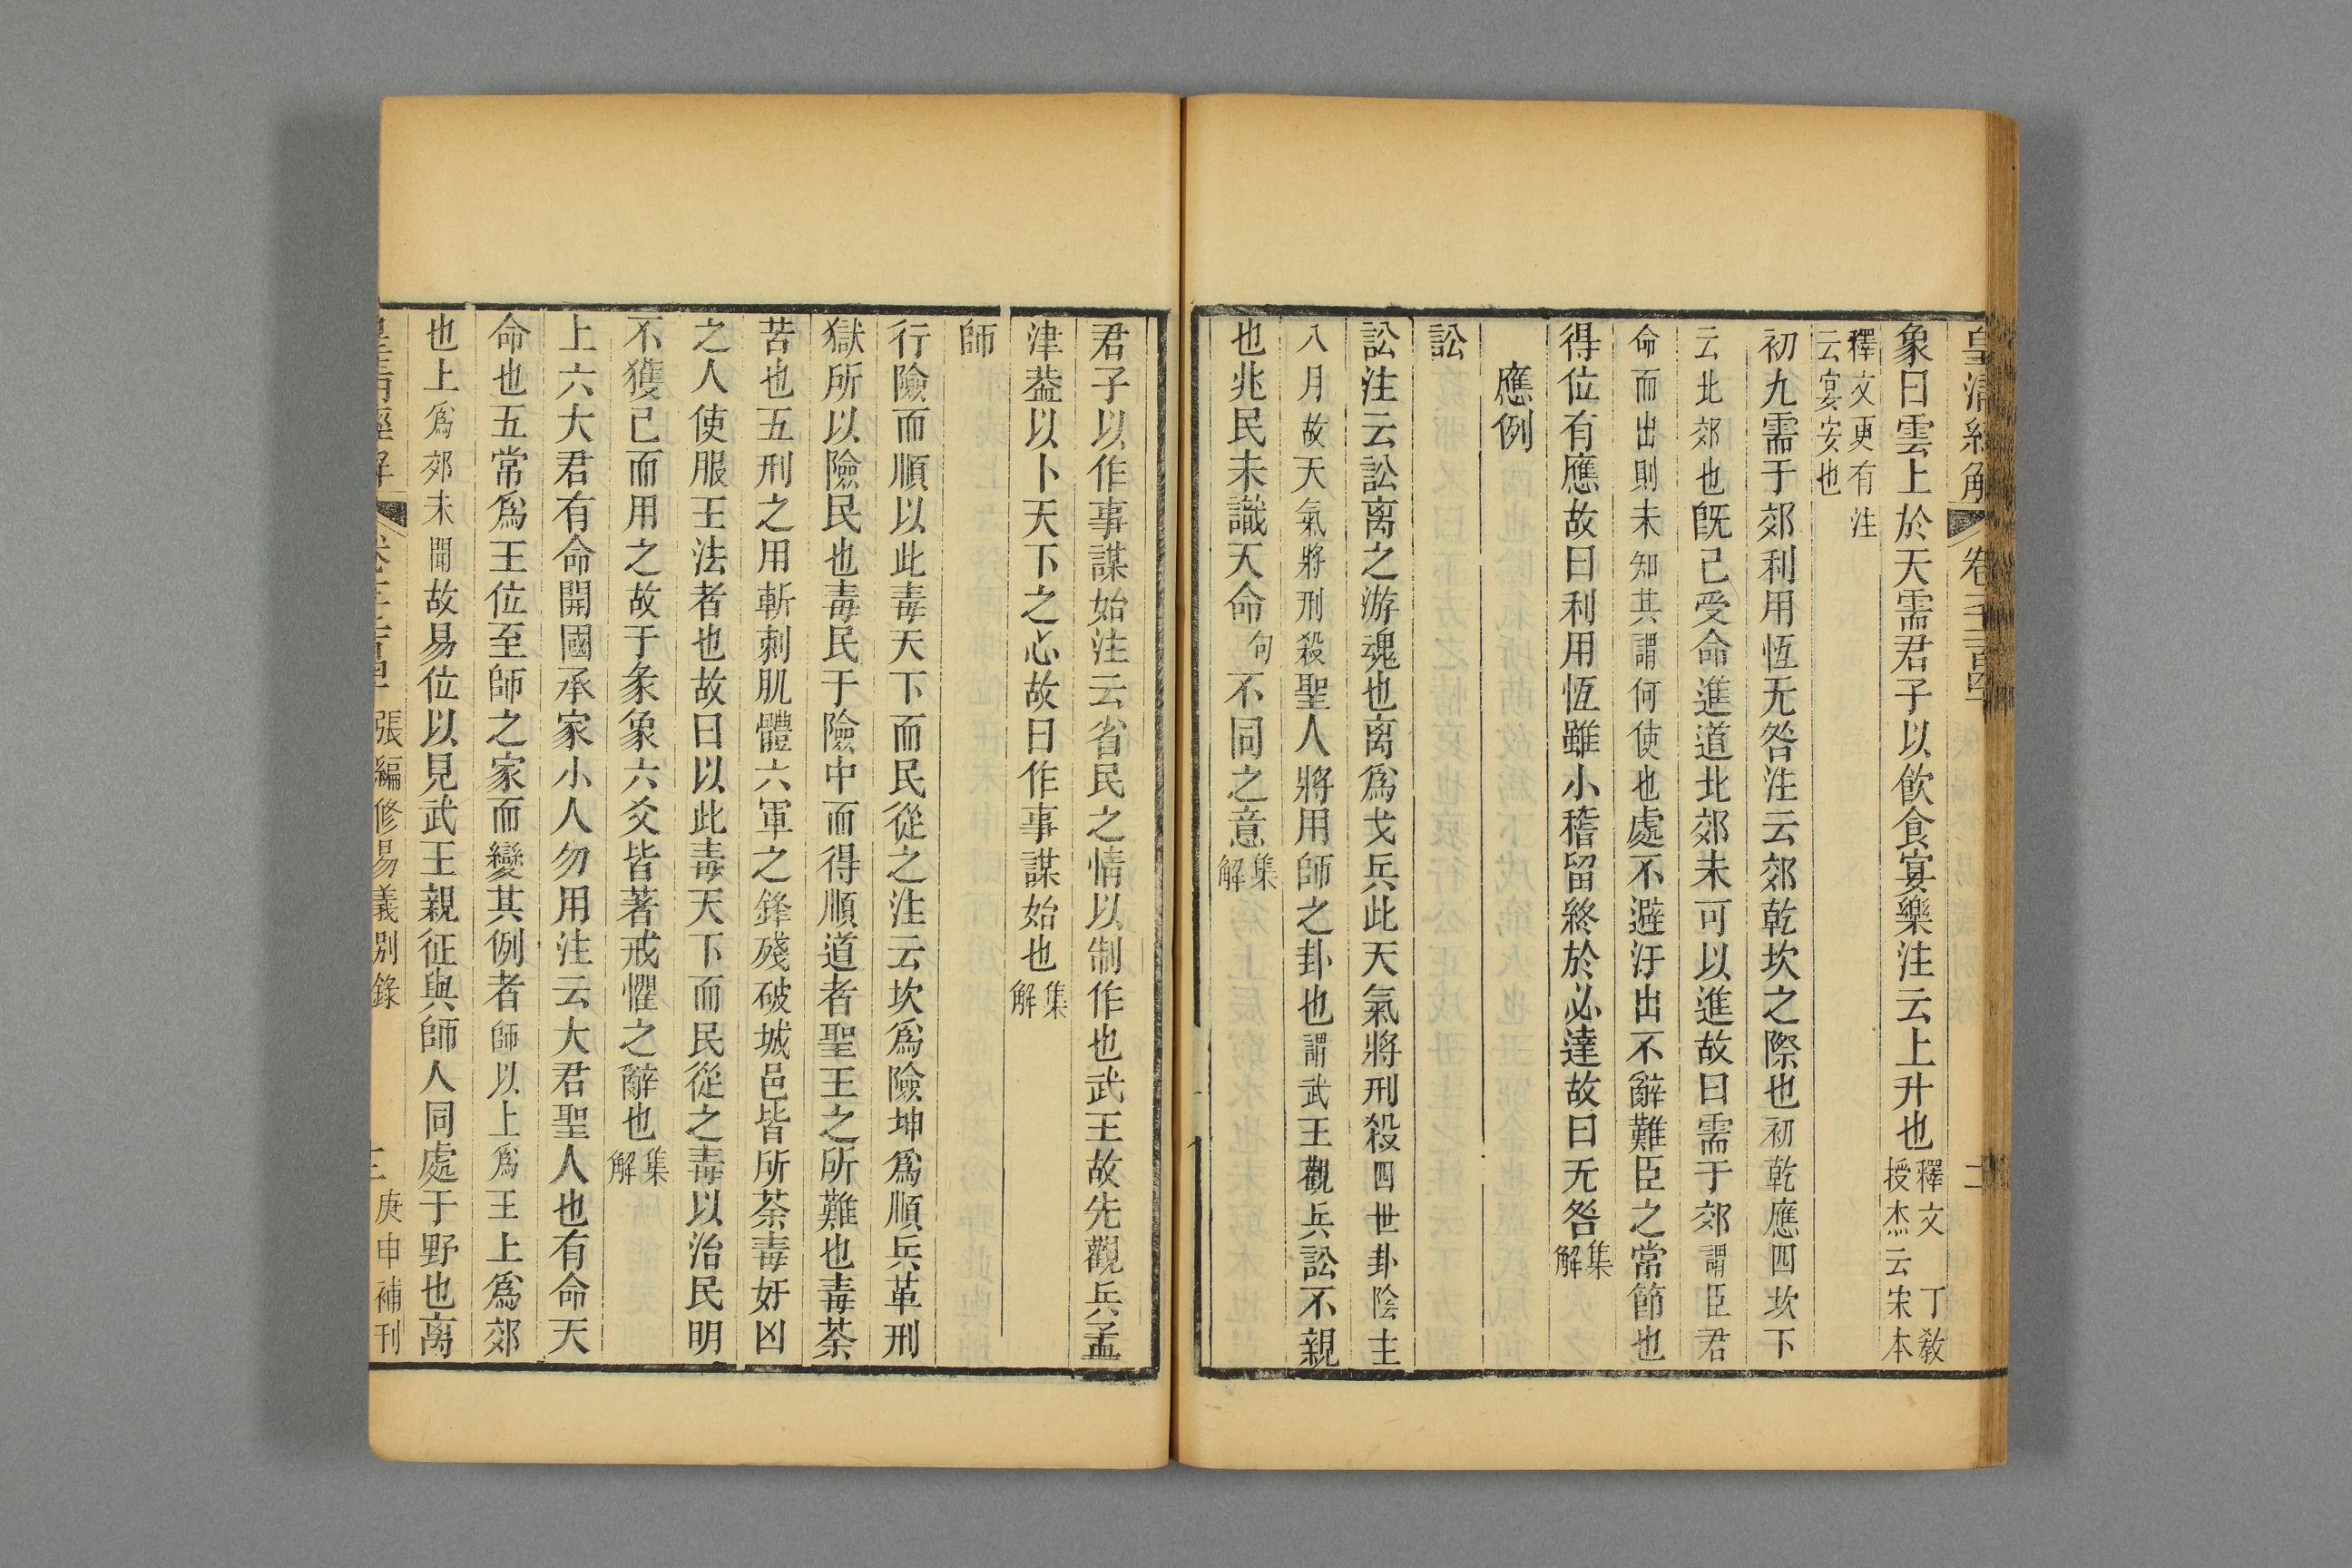 皇清經解 卷
象曰雲上於天需君子以飲食宴樂注云上升也釋文 丁敎授杰云宋本
釋文更有注云宴安也
初九需于郊利用恆无咎注云郊乾坎之際也初乾應四坎下
云北郊也旣已受命進道北郊未可以進故曰需于郊謂臣君
命而出則未知其謂何使也處不避汙出不辭難臣之常節也
得位有應故曰利用恆雖小稽留終於必達故曰无咎集解
應例
訟
訟注云訟离之游魂也离爲戈兵此天氣將刑殺四世卦陰主
八月故天氣將刑殺聖人將用師之卦也謂武王觀兵訟不親
也兆民未識天命句不同之意集解
君子以作事謀始注云省民之情以制作也武王故先觀兵孟
津葢以卜天下之心故曰作事謀始也集解
師
行險而順以此毒天下而民從之注云坎爲險坤爲順兵革刑
獄所以險民也毒民于險中而得順道者聖王之所難也毒荼
苦也五刑之用斬刺肌體六軍之鋒殘破城邑皆所荼毒奸凶
之人使服王法者也故曰以此毒天下而民從之毒以治民明
不獲已而用之故于彖象六爻皆著戒懼之辭也集解
上六大君有命開國承家小人勿用注云大君聖人也有命天
命也五常爲王位至師之家而變其例者師以上爲王上爲郊
也上爲郊未聞故易位以見武王親征與師人同處于野也离
皇清經解 卷 張編修易義別錄 庚申補刊